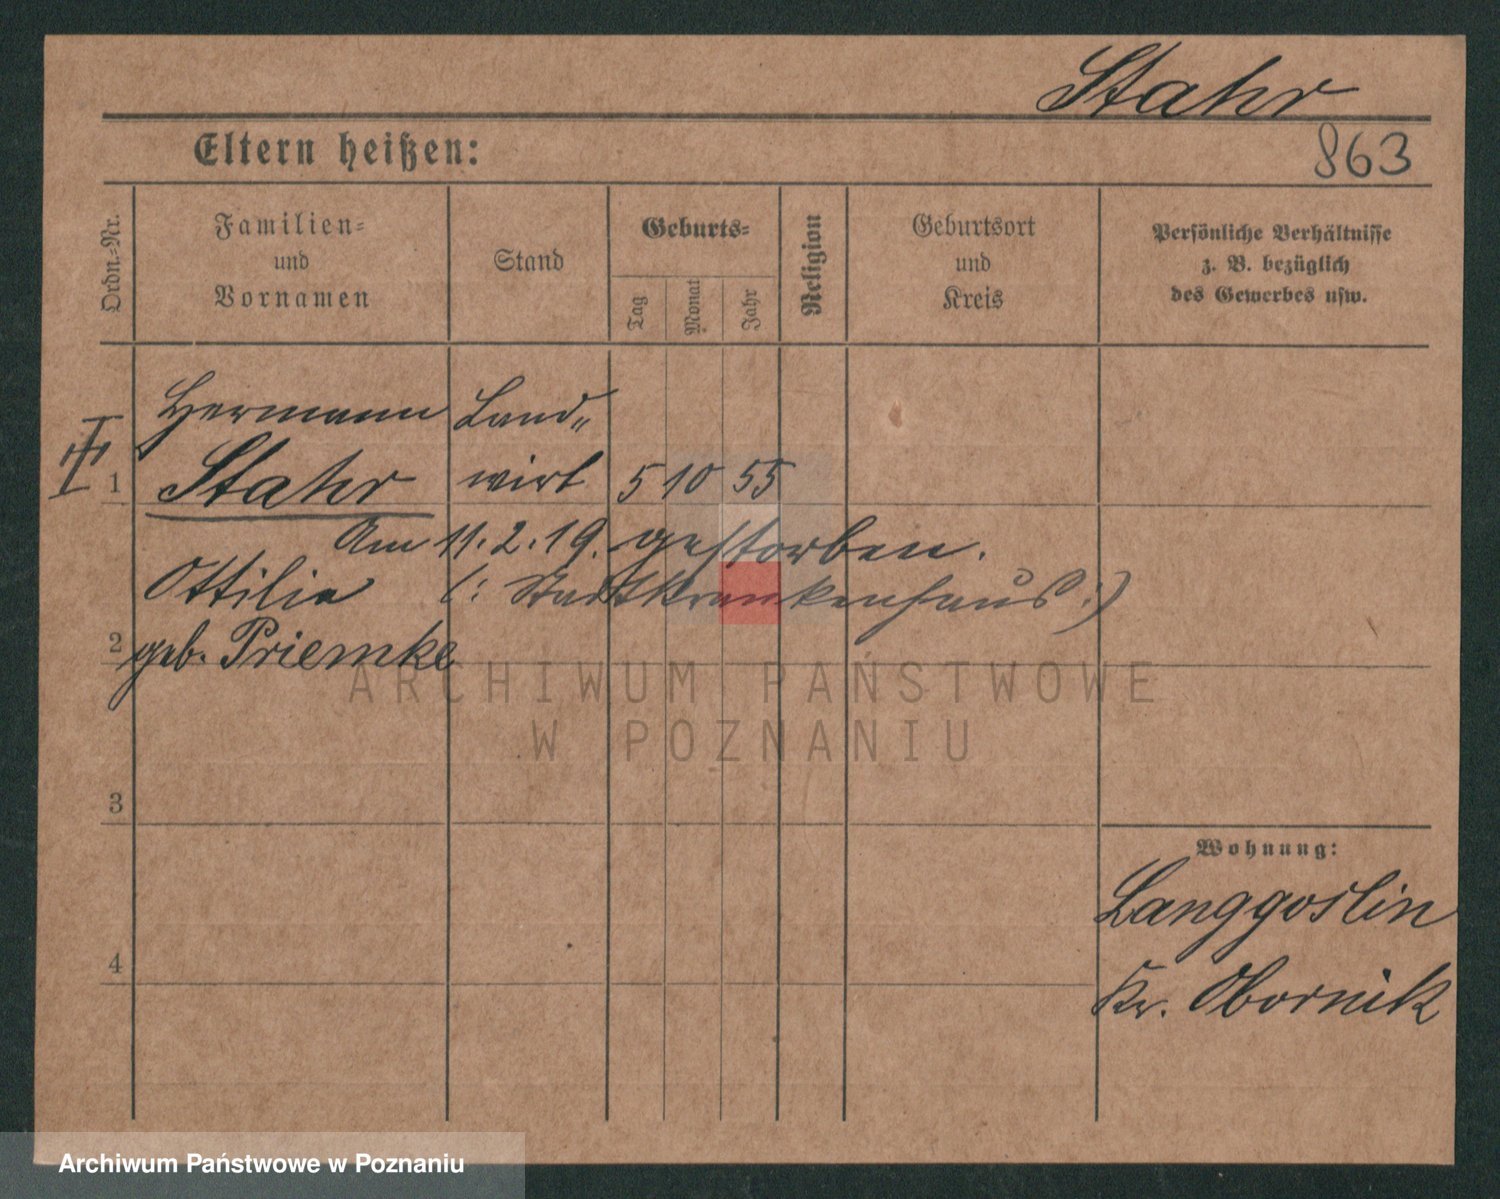 Stahr
Eltern heißen:
863
Ordn.-Nr.
Familien-
und
Vornamen
Stand
Geburts-
Tag
Monat
Jahr
Religion
Geburtsort
und
Kreis
Persönliche Verhältnisse
z. B. bezüglich
des Gewerbes usw.
Hermann Land-
1 Stahr wirt 5 10 55
Am 11.2.19. gestorben.
Ottilie (: Stadtkrankenhaus :)
2 geb. Priemke
ARCHIWUM PAŃSTWOWE
W POZNANIU
3
Wohnung:
Langgoslin
4
Kr. Obornik
Archiwum Państwowe w Poznaniu